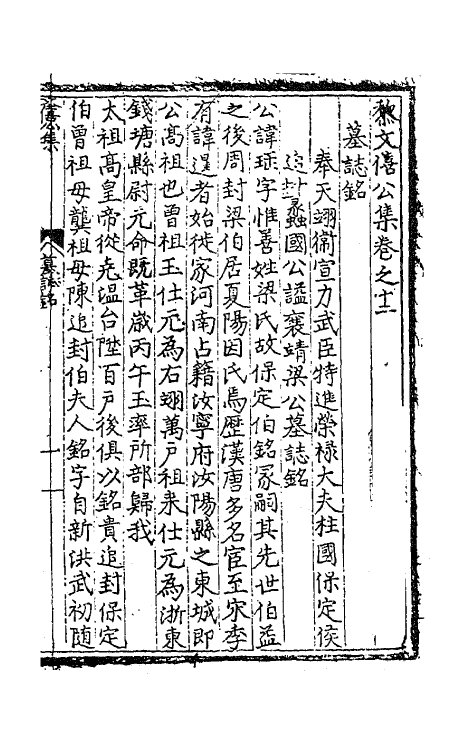 黎文僖公集卷之十二
墓誌銘
奉天翊衛宣力武臣特進榮禄大夫柱國保定侯
追封蠡國公謚襄靖梁公墓誌銘
公諱珤字惟善姓梁氏故保定伯銘冢嗣其先世伯益
之後周封梁伯居夏陽因氏焉歷漢唐多名宦至宋季
有諱暹者始徙家河南占籍汝寧府汝陽縣之東城即
公高祖也曾祖玉仕元為右翊萬戶祖來仕元為浙東
錢塘縣尉元命既革歲丙午玉率所部歸我
太祖高皇帝從克溫台陞百戶後俱以銘貴追封保定
伯曾祖母龔祖母陳追封伯夫人銘字自新洪武初随
僖公集
墓誌銘
一